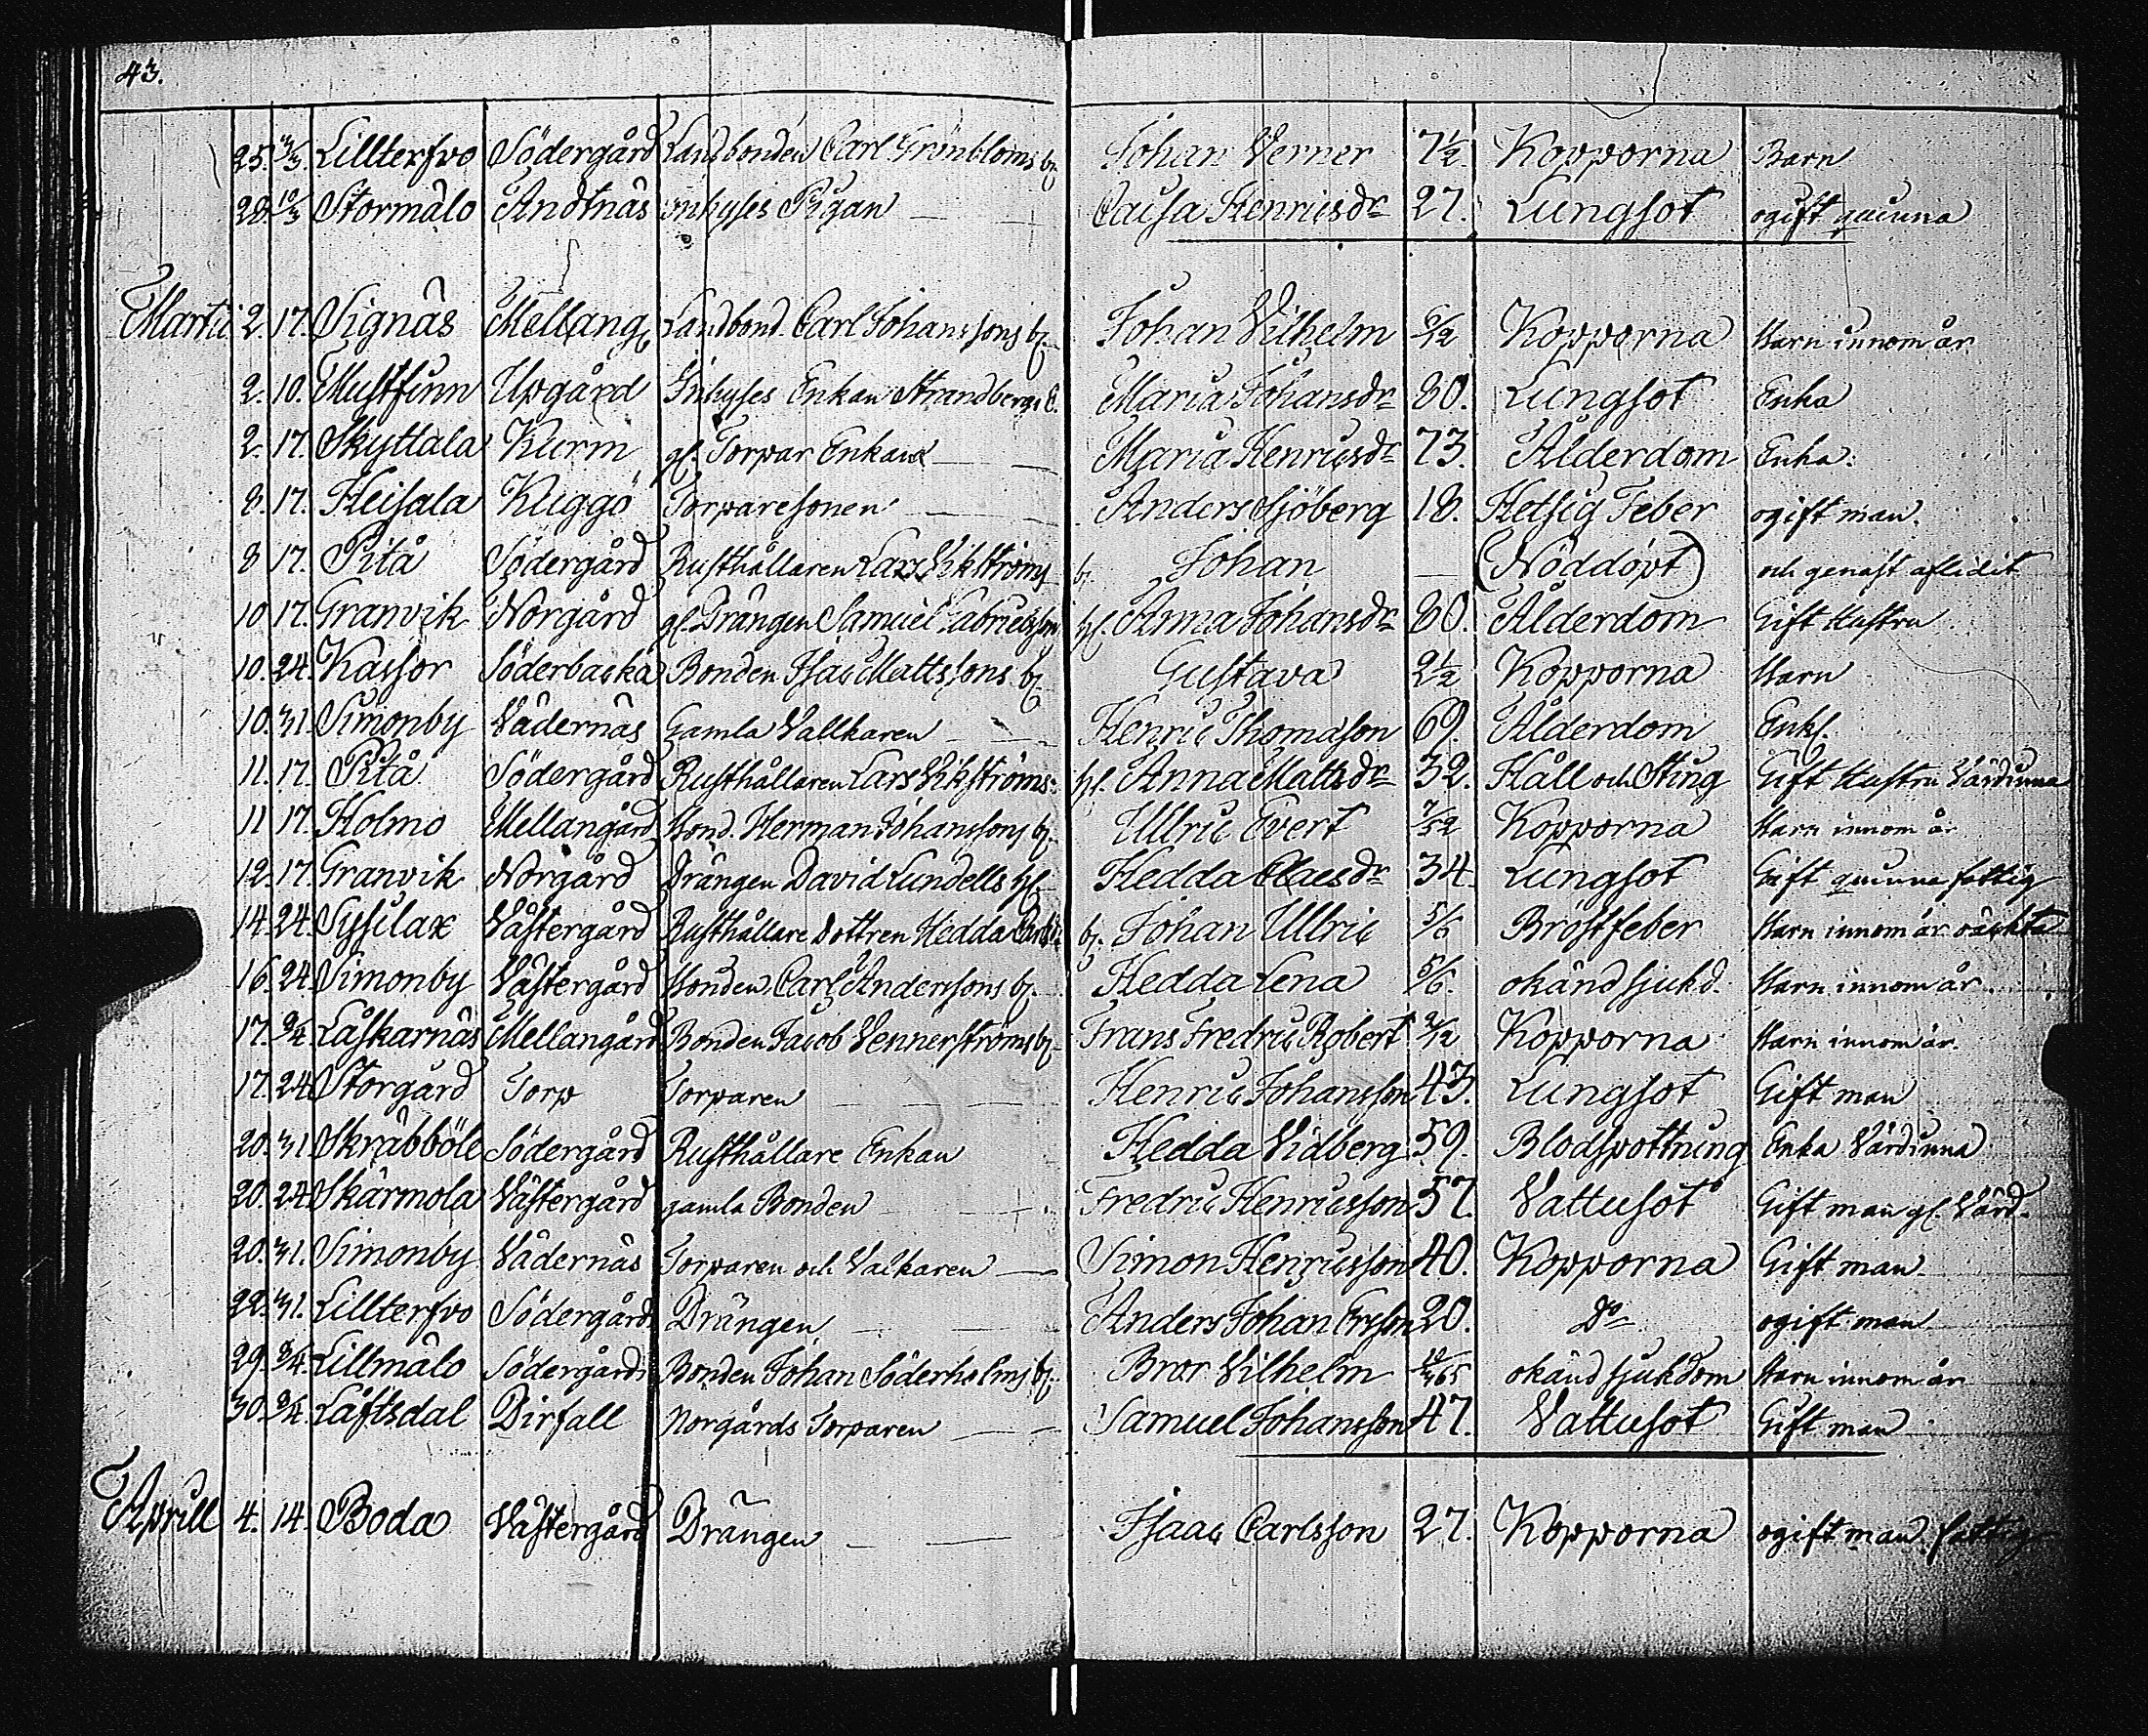 43.
25. 3/3. Lillterfvo Södergård Landbonden Carl Grönbloms bj. Johan Verner 7½ Kopporna Barn
28. 10/3 Stormälo Andtnäs inhyses Pigan Caisa Henricsdr 27. Lungsot ogift quinna
Martii 2. 17. Vignäs Mellang. Landbond. Carl Johanssons bj. Johan Vilhelm Kopporna Barn innom år
2. 10. Mustfinn Upgård Inhyses Enkan Strandbergs E. Maria Johansdr 80. Lungsot Enka
2. 17. Skyttala Kurm gl. Torpar Enkan Maria Henricsdr 73. Ålderdom Enka.
8. 17. Heisala Kuggö Torparesonen Anders Sjöberg 18. Hetsig Feber ogift man.
8 17. Pitå Södergård Rusthållaren Lars Vikströms bj. Johan — (Nöddöpt) och genast aflidit
10 17. Granvik Norgård gl. Drängen Samuel Gabrielsson hf. Anna Johansdr 80. Ålderdom Gift Hustru
10. 24. Kassor Söderbacka Bonden Isac Mattssons bj. Gustava 2½ Kopporna Barn
10. 31. Simonby Vädernäs Gamla Vallkaren Henric Thomasson 69. Ålderdom Enkl.
11. 17. Pitå Södergård Rusthållaren Lars Vikströms hf. Anna Mattsdr 32. Håll och Sting Gift Hustru Värdinna
11 17. Holmo Mellangård Bond. Herman Johanssons bj. Ullric Evert 7/52 Kopporna Barn innom år
12. 17. Granvik Norgård Drängen David Lundells hf. Hedda Claesdr 34. Lungsot Gift quinna fattig
14. 24. Sysilax Västergård Rusthållare Dottren Hedda Carlsdr bj. Johan Ullric 5/6 Bröstfeber Barn innom år oäckta
16. 24. Simonby Västergård Bonden Carl Anderssons bj. Hedda Lena 5/6. okänd sjukd. Barn innom år
17. 9/4. Låskarnäs Mellangård Bonden Jacob Vennerströms bj. Frans Fredric Robert Kopporna Barn innom år.
17. 24 Storgård Torp Torparen Henric Johansson 43. Lungsot Gift man
20. 31 Skräbböle Södergård Rusthållare Enkan Hedda Vidberg 59. Blodspottning Enka Värdinna
20. 24. Skärmola Västergård gamla Bonden Fredric Henricsson 57. Vattusot Gift man gl. Värd.
20. 31. Simonby Vädernäs Torparen och Valkaren Simon Henricsson 40. Kopporna Gift man.
22. 31. Lillterfvo Södergård Drängen Anders Johan Ersson 20. Do ogift man
29. 8/4. Lillmälo Södergård Bonden Johan Söderholms bj. Bror Vilhelm okänd sjukdom Barn innom år
30. 9/4. Låftsdal Dirfall Norgårds Torparen Samuel Johansson 47. Vattusot Gift man
Aprill 4. 14. Boda Västergård Drängen Isaac Carlsson 27. Kopporna ogift man. fattig